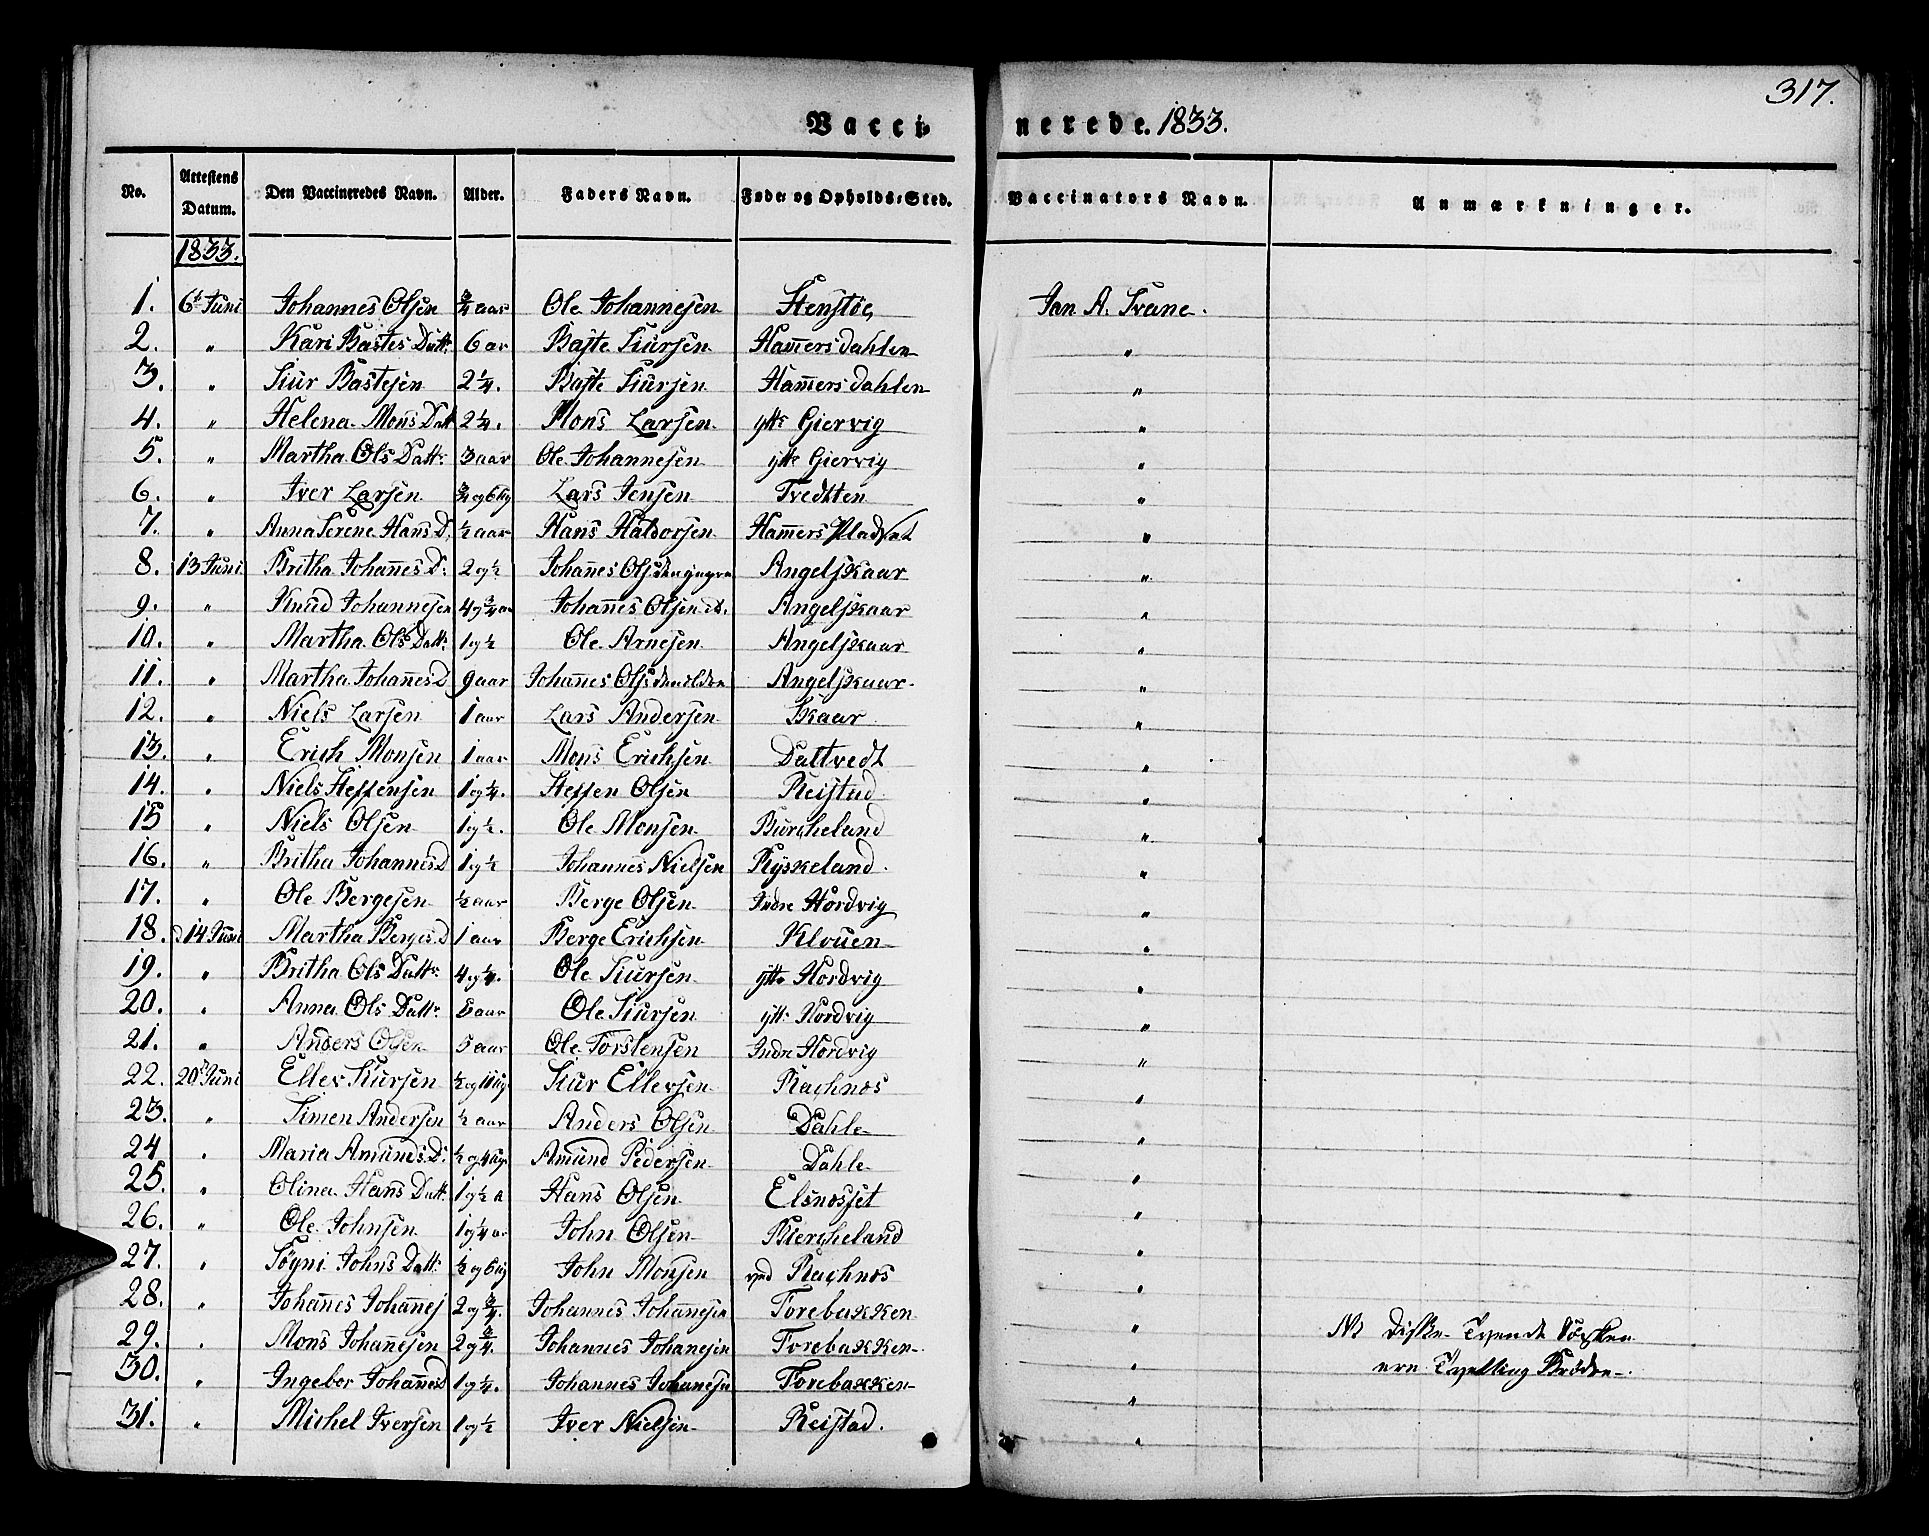 317.
Vaccinerede. 1833.
No. Attestens Datum. Den Vaccineredes Navn. Alder. Faders Navn. Føde- og Opholds-Sted. Vaccinators Navn. Anmærkninger.
1833.
1. 6t Juni Johannes Olsen ¾ aar Ole Johannesen Stenstøe, Jan A. Svane.
2. " Kari Bastes Datt: 6 ar Baste Siursen Hamersdahlen "
3. " Siur Bastesen 2¼. Baste Siursen Hamersdahlen "
4. " Helena Mons Datt 2¼. Mons Larsen ytte Giervig "
5. " Martha Ols Datt: 3 aar Ole Johannesen ytte Giervig "
6. " Iver Larsen ¾ og 6 Ug Lars Jensen Tvedten "
7. " Anna Serene Hans D. ½ aar Hans Haldorsen Hamers Pladset "
8. 13 Juni Britha Johanes D: 2 og ½ Johanes Ols den yngre Angelskaar "
9. " Knud Johannesen 4 og ¾ aar Johanes Olsen d. Angelskaar "
10. " Martha Ols Datt: 1 og ½ Ole Arnesen Angelskaar "
11. " Martha Johanes D 9 aar Johanes Ols den ældre Angelskaar "
12. " Niels Larsen 1 aar Lars Andersen Skaar "
13. " Erich Monsen 1 aar Mons Erichsen Daltvedt "
14. " Niels Steffensen 1 og ¼. Steffen Olsen Reistad "
15 " Niels Olsen 1 og ½. Ole Monsen Burcheland "
16. " Britha Johannes D 1 og ½ Johannes Nielsen Ryskeland. "
17. " Ole Bergesen ½ aar Berge Olsen Indre Hordvig "
18. 14 Juni Martha Berges D 1 aar Berge Erichsen Klouen "
19. " Britha Ols Datt: 4 og ¼. Ole Siursen ytte Hordvig "
20. " Anna Ols Datt: 5 aar Ole Siursen ytte Hordvig "
21. " Anders Olsen 5 aar Ole Torstensen Indre Hordvig "
22. 20 Juni Ellev Siursen ½ og 11 Ug Siur Ellevsen Rachnos "
23. " Simen Andersen ½ aar Anders Olsen Dahle "
24 " Maria Amunds D: ½ og 4 Ug Amund Pedersen Dahle "
25. " Olina Hans Datt. 1 og ½ a Hans Olsen Elsnosset "
26. " Ole Johnsen 1 og ¼ ar John Olsen Biercheland "
27. " Søgni Johns Datt: ½ og 6 Ug John Monsen ved Rachnos "
28. " Johanes Johanes 2 og ¾. Johannes Johanesen Forebakken "
29. " Mons Johanesen 2 og ¾. Johannes Johanesen Forebakken "
30. " Ingebor Johanes D 1 og ¼. Johannes Johanesen Forebakken "
31. " Michel Iversen 1 og ½ Iver Nielsen Reistad. "
NB Diske Tvende
ere Tvelling Brødre